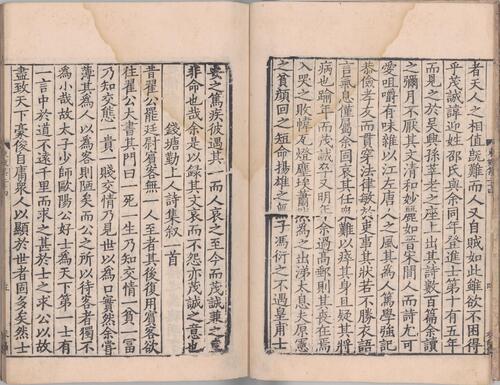 者天人之相值既難而人又自賊如此雖欲不困得
乎茂誠諱迎姓邵氏與余同年登進士第十有五年
而見之於吳興孫莘老之座上出其詩數百篇余讀
之彌月不厭其文清和妙麗如晉宋間人而詩尤可
愛咀嚼有味雜以江左唐人之風其為人篤學強記
恭儉孝友而貫穿法律敏於吏事其狀若不勝衣語
言氣息僅屬余固哀其任難以瘁其身且疑其將
病也踰年而茂誠卒又明年余過高郵則其喪在焉
入哭之敗幃瓦燈塵埃蕭然為之出涕太息夫原憲
之貧顏回之短命揚雄之無子馮衍之不遇皇甫士
安之篤疾彼遇其一而人哀之至今而茂誠兼之豈
非命也哉余是以錄其文哀而不怨亦茂誠之意也
錢塘勤上人詩集敘一首
昔翟公罷廷尉賓客無一人至者其後復用賓客欲
往翟公大書其門曰一死一生乃知交情一貧一富
乃知交態一貴一賤交情乃見世以為口實然余嘗
薄其為人以為客則陋矣而公之所以待客者獨不
為小哉故太子少師歐陽公好士為天下第一士有
一言中於道不遠千里而求之甚於士之求公以故
盡致天下豪俊自庸衆人以顯於世者固多矣然士